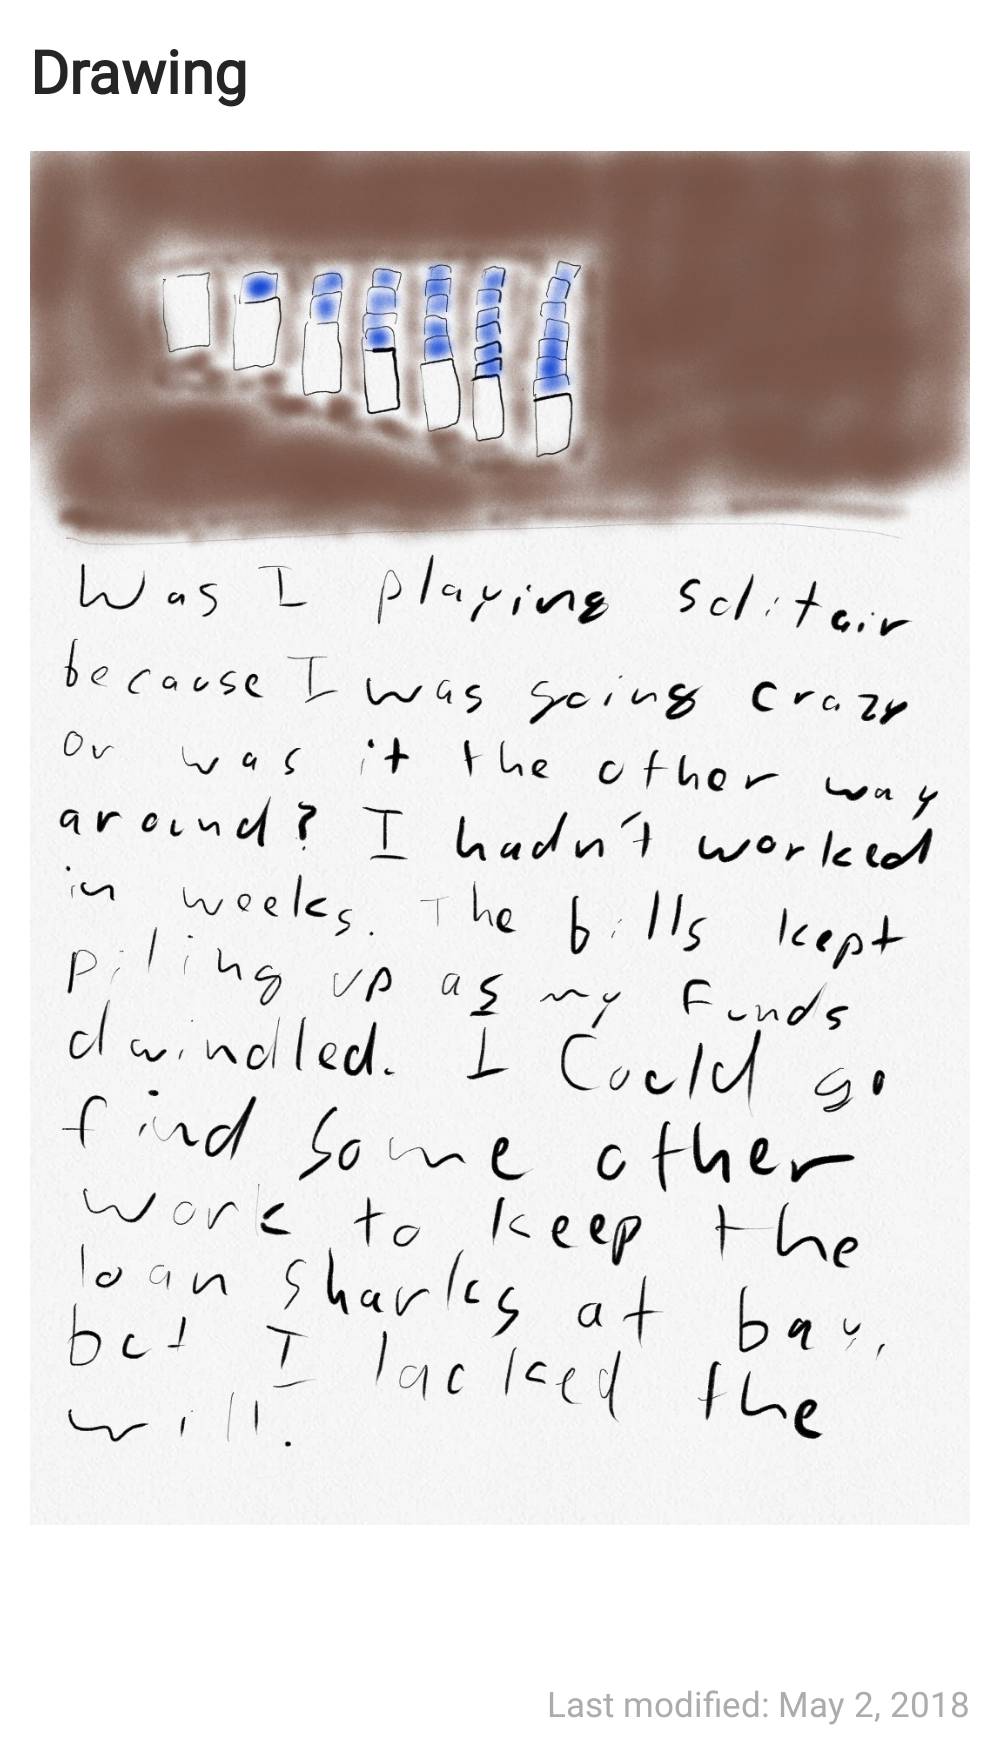 Drawing
Was I playing solitair
because I was going crazy
or was it the other way
around? I hadn't worked
in weeks. The bills kept
piling up as my funds
dwindled. I Could go
find some other
work to keep the
loan sharks at bay,
but I lacked the
will.
Last modified: May 2, 2018